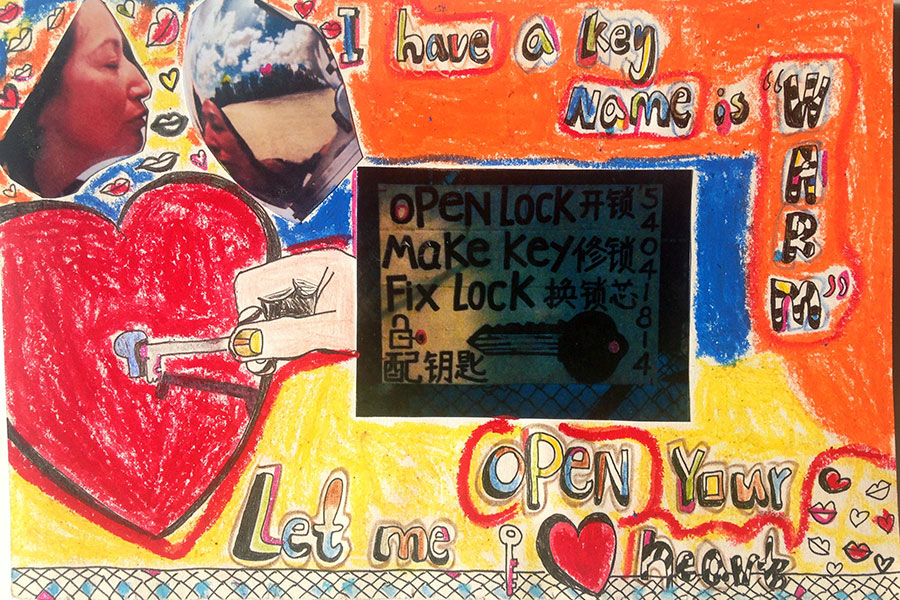 I have a key
Name is "WARM"
OPEN LOCK 开锁
Make Key 修锁
Fix LOCK 换锁芯
配钥匙
54041814
Let me OPEN Your
heart